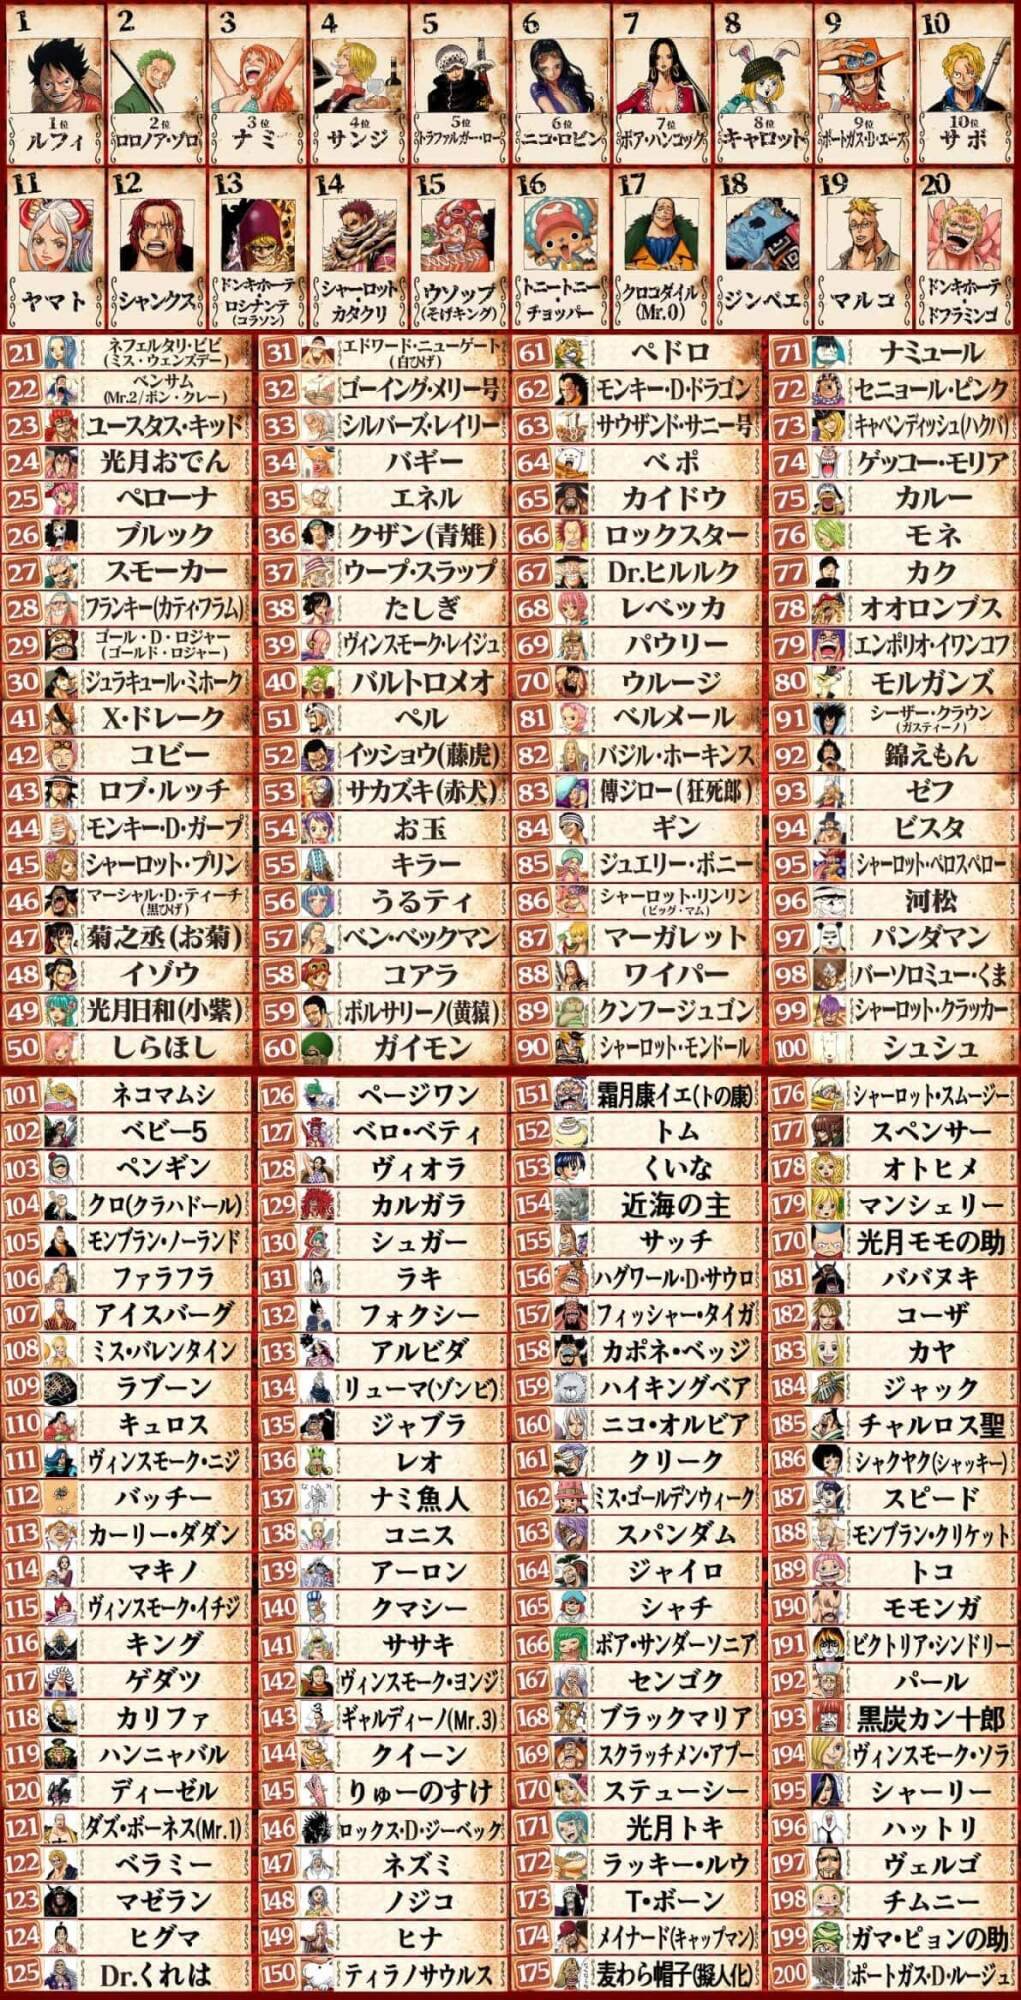 1
1位
ルフィ
2
2位
ロロノア・ゾロ
3
3位
ナミ
4
4位
サンジ
5
5位
トラファルガー・ロー
6
6位
ニコ・ロビン
7
7位
ボア・ハンコック
8
8位
キャロット
9
9位
ポートガス・D・エース
10
10位
サボ
11
ヤマト
12
シャンクス
13
ドンキホーテ
・
ロシナンテ
(コラソン)
14
シャーロット
・
カタクリ
15
ウソップ
(そげキング)
16
トニートニー
・
チョッパー
17
クロコダイル
(Mr.0)
18
ジンベエ
19
マルコ
20
ドンキホーテ
・
ドフラミンゴ
21 ネフェルタリ・ビビ
(ミス・ウェンズデー)
22 ベンサム
(Mr.2/ボン・クレー)
23 ユースタス・キッド
24 光月おでん
25 ペローナ
26 ブルック
27 スモーカー
28 フランキー(カティ・フラム)
29 ゴール・D・ロジャー
(ゴールド・ロジャー)
30 ジュラキュール・ミホーク
31 エドワード・ニューゲート
(白ひげ)
32 ゴーイング・メリー号
33 シルバーズ・レイリー
34 バギー
35 エネル
36 クザン(青雉)
37 ウープ・スラップ
38 たしぎ
39 ヴィンスモーク・レイジュ
40 バルトロメオ
61 ペドロ
62 モンキー・D・ドラゴン
63 サウザンド・サニー号
64 ベポ
65 カイドウ
66 ロックスター
67 Dr.ヒルルク
68 レベッカ
69 パウリー
70 ウルージ
71 ナミュール
72 セニョール・ピンク
73 キャベンディッシュ(ハクバ)
74 ゲッコー・モリア
75 カルー
76 モネ
77 カク
78 オオロンブス
79 エンポリオ・イワンコフ
80 モルガンズ
41 X・ドレーク
42 コビー
43 ロブ・ルッチ
44 モンキー・D・ガープ
45 シャーロット・プリン
46 マーシャル・D・ティーチ
(黒ひげ)
47 菊之丞(お菊)
48 イゾウ
49 光月日和(小紫)
50 しらほし
51 ペル
52 イッショウ(藤虎)
53 サカズキ(赤犬)
54 お玉
55 キラー
56 うるティ
57 ベン・ベックマン
58 コアラ
59 ボルサリーノ(黄猿)
60 ガイモン
81 ベルメール
82 バジル・ホーキンス
83 傳ジロー(狂死郎)
84 ギン
85 ジュエリー・ボニー
86 シャーロット・リンリン
(ビッグ・マム)
87 マーガレット
88 ワイパー
89 クンフージュゴン
90 シャーロット・モンドール
91 シーザー・クラウン
(ガスティーノ)
92 錦えもん
93 ゼフ
94 ビスタ
95 シャーロット・ペロスペロー
96 河松
97 パンダマン
98 バーソロミュー・くま
99 シャーロット・クラッカー
100 シュシュ
101 ネコマムシ
102 ベビー5
103 ペンギン
104 クロ(クラハドール)
105 モンブラン・ノーランド
106 ファラフラ
107 アイスバーグ
108 ミス・バレンタイン
109 ラブーン
110 キュロス
111 ヴィンスモーク・ニジ
112 バッチー
113 カーリー・ダダン
114 マキノ
115 ヴィンスモーク・イチジ
116 キング
117 ゲダツ
118 カリファ
119 ハンニャバル
120 ディーゼル
121 ダズ・ボーネス(Mr.1)
122 ベラミー
123 マゼラン
124 ヒグマ
125 Dr.くれは
126 ページワン
127 ベロ・ベティ
128 ヴィオラ
129 カルガラ
130 シュガー
131 ラキ
132 フォクシー
133 アルビダ
134 リューマ(ゾンビ)
135 ジャブラ
136 レオ
137 ナミ魚人
138 コニス
139 アーロン
140 クマシー
141 ササキ
142 ヴィンスモーク・ヨンジ
143 ギャルディーノ(Mr.3)
144 クイーン
145 りゅーのすけ
146 ロックス・D・ジーベック
147 ネズミ
148 ノジコ
149 ヒナ
150 ティラノサウルス
151 霜月康イエ(トの康)
152 トム
153 くいな
154 近海の主
155 サッチ
156 ハグワール・D・サウロ
157 フィッシャー・タイガ
158 カポネ・ベッジ
159 ハイキングベア
160 ニコ・オルビア
161 クリーク
162 ミス・ゴールデンウィーク
163 スパンダム
164 ジャイロ
165 シャチ
166 ボア・サンダーソニア
167 センゴク
168 ブラックマリア
169 スクラッチメン・アプー
170 ステューシー
171 光月トキ
172 ラッキー・ルウ
173 T・ボーン
174 メイナード(キャップマン)
175 麦わら帽子(擬人化)
176 シャーロット・スムージー
177 スペンサー
178 オトヒメ
179 マンシェリー
170 光月モモの助
181 ババヌキ
182 コーザ
183 カヤ
184 ジャック
185 チャルロス聖
186 シャクヤク(シャッキー)
187 スピード
188 モンブラン・クリケット
189 トコ
190 モモンガ
191 ビクトリア・シンドリー
192 パール
193 黒炭カン十郎
194 ヴィンスモーク・ソラ
195 シャーリー
196 ハットリ
197 ヴェルゴ
198 チムニー
199 ガマ・ピョンの助
200 ポートガス・D・ルージュ